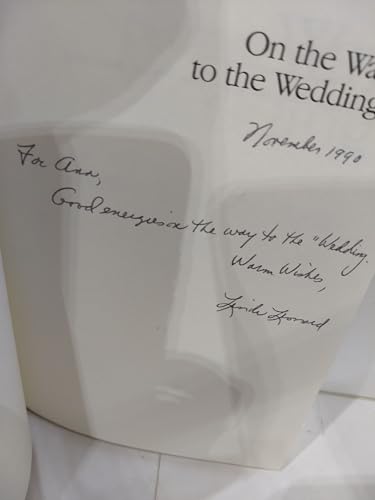 On the Wa
to the Wedding
November 1990
For Ann,
Good energies on the way to the "Wedding.
Warm Wishes,
Linda Leonard